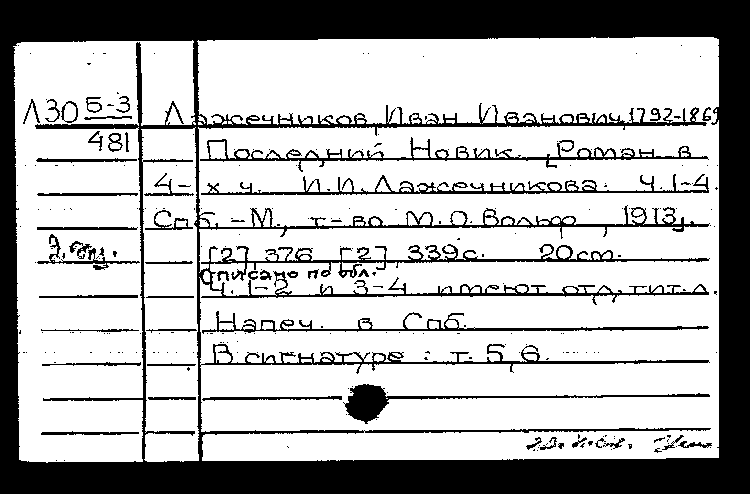 Л30 Б-3 Лажечников, Иван Иванович, 1792-1869
481 Последний Новик. [Роман в
4-х ч. И.И. Лажечникова. Ч. 1-4.
Спб.-М., т-во М.О. Вольф, 1913].
[2], 376, [2], 339 с. 20 см.
Описано по обл.
Ч. 1-2 и 3-4 имеют отд. тит. л.
Напеч. в Спб.
В сигнатуре: т. 5, 6.